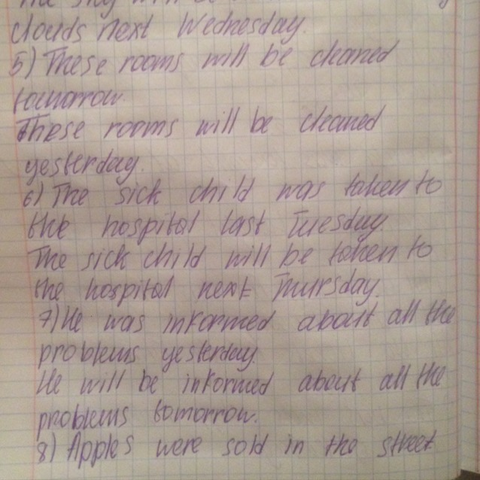 The sky will be
clouds next Wednesday.
5) These rooms will be cleaned
tomorrow
These rooms will be cleaned
yesterday.
6) The sick child was taken to
the hospital last Tuesday.
The sick child will be taken to
the hospital next Thursday.
7) He was informed about all the
problems yesterday.
He will be informed about all the
problems tomorrow.
8) Apples were sold in the street